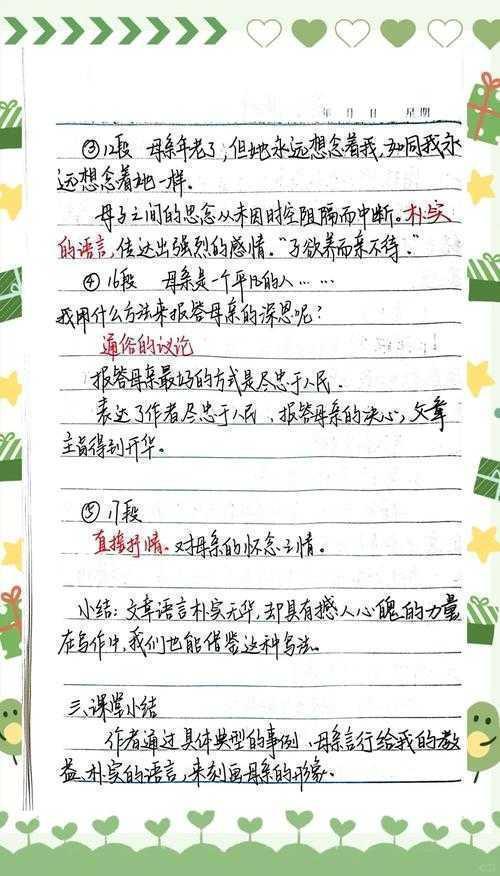 年 月 日 星期
③12段 母亲年老了,但她永远想念着我,如同我永
远想念着她一样。
母子之间的思念从未因时空阻隔而中断。朴实
的语言,传达出强烈的感情。“子欲养而亲不待。”
④16段 母亲是一个平凡的人……
我用什么方法来报答母亲的深恩呢?
通俗的议论
报答母亲最好的方式是尽忠于人民。
表达了作者尽忠于人民、报答母亲的决心,文章
主旨得到升华。
⑤17段
直接抒情。对母亲的怀念之情。
小结:文章语言朴实无华,却具有撼人心魄的力量
在写作中,我们也能借鉴这种写法。
三、课堂小结
作者通过具体典型的事例、母亲言行给我的教
益、朴实的语言,来刻画母亲的形象。